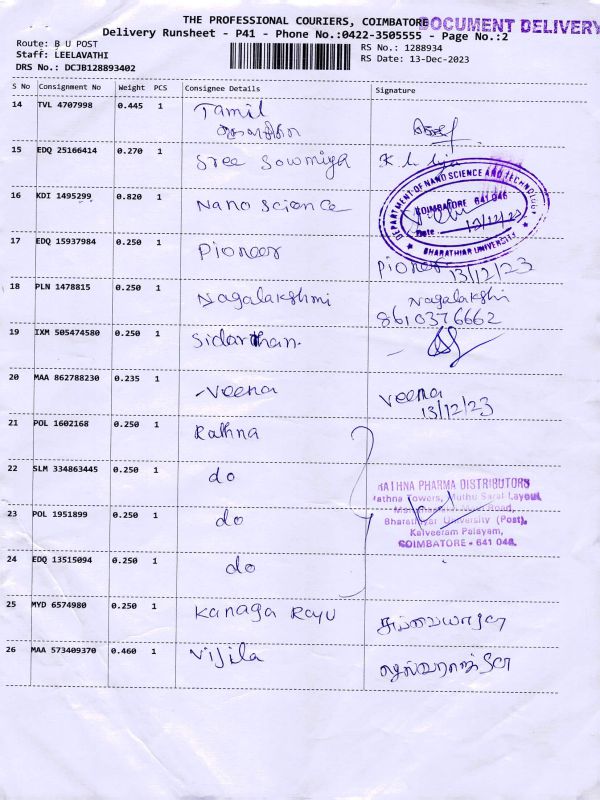 THE PROFESSIONAL COURIERS, COIMBATORE
DOCUMENT DELIVERY
Delivery Runsheet - P41 - Phone No.:0422-3505555 - Page No.:2
Route: B U POST
Staff: LEELAVATHI
DRS No.: DCJB128893402
RS No.: 1288934
RS Date: 13-Dec-2023
S No Consignment No Weight PCS Consignee Details Signature
14 TVL 4707998 0.445 1 Tamil
15 EDQ 25166414 0.270 1 Sree Sowmiya
16 KDI 1495299 0.820 1 Nano Science
DEPARTMENT OF NANO SCIENCE AND TECHNOLOGY
COIMBATORE 641 046
Date : 13/12/23
BHARATHIAR UNIVERSITY
17 EDQ 15937984 0.250 1 Pioneer Pioneer 13/12/23
18 PLN 1478815 0.250 1 Nagalakshmi Nagalakshi
8610376662
19 IXM 505474580 0.250 1 Sidarthan.
20 MAA 862788230 0.235 1 Veena Veena
13/12/23
21 POL 1602168 0.250 1 Rathna
22 SLM 334863445 0.250 1 do
23 POL 1951899 0.250 1 do
24 EDQ 13515094 0.250 1 do
RATHNA PHARMA DISTRIBUTORS
Rathna Towers, Muthu Saral Layout,
Road,
Bharathiyar University (Post),
Kalveeram Palayam,
COIMBATORE - 641 046.
25 MYD 6574980 0.250 1 Kanaga Rayu
26 MAA 573409370 0.460 1 Vijila